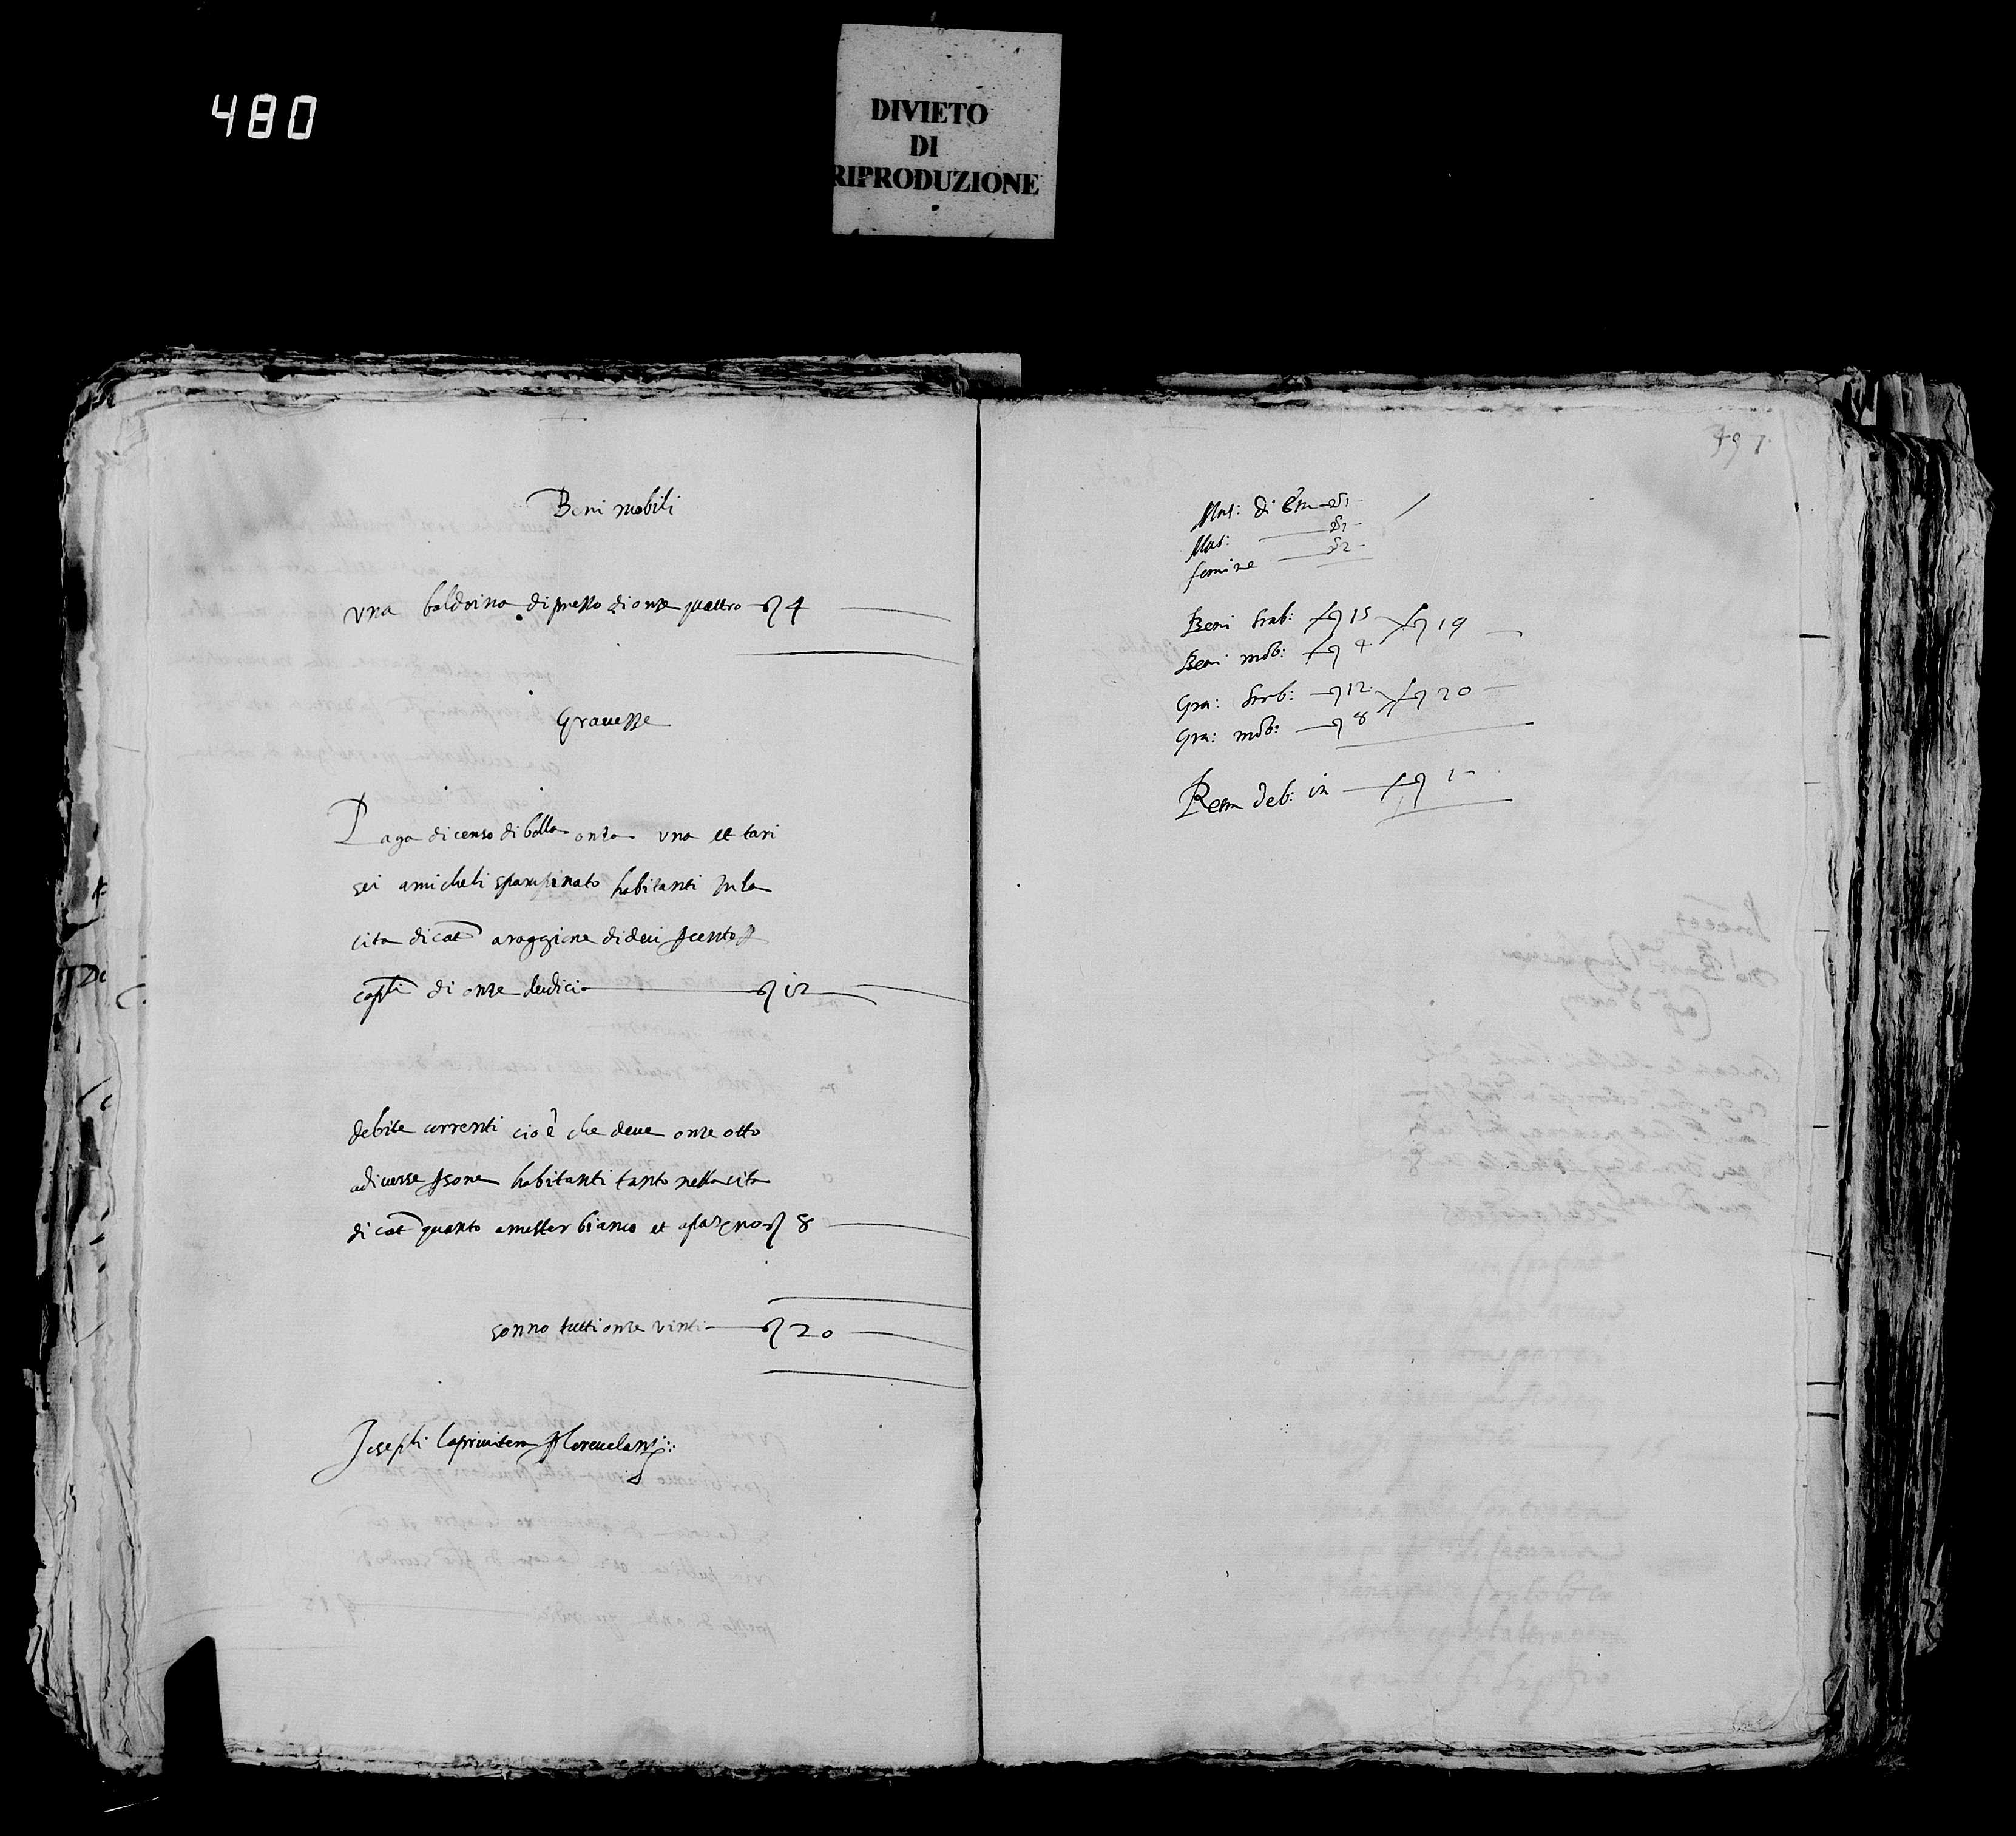 480
DIVIETO
DI
RIPRODUZIONE
Beni mobili
una baldoina di prezzo di onze quattro 4
Gravezze
Paga di censo di bolla onza una et tari
sei a micheli spampinato habitanti in la
cita di cat a raggione di deci p cento p
capli di onze dudici 12
debite correnti cioè che deve onze otto
a diverse psone habitanti tanto nella cita
di cat quanto a mister bianco et 8
sonno tutti onze vinti 20
Joseph
497
Mas: di
Mas:
femine 2
Beni stab: 15 19
Beni mob: 4
Gra: stab: 12 20
Gra: mob: 8
Resta deb: in 1